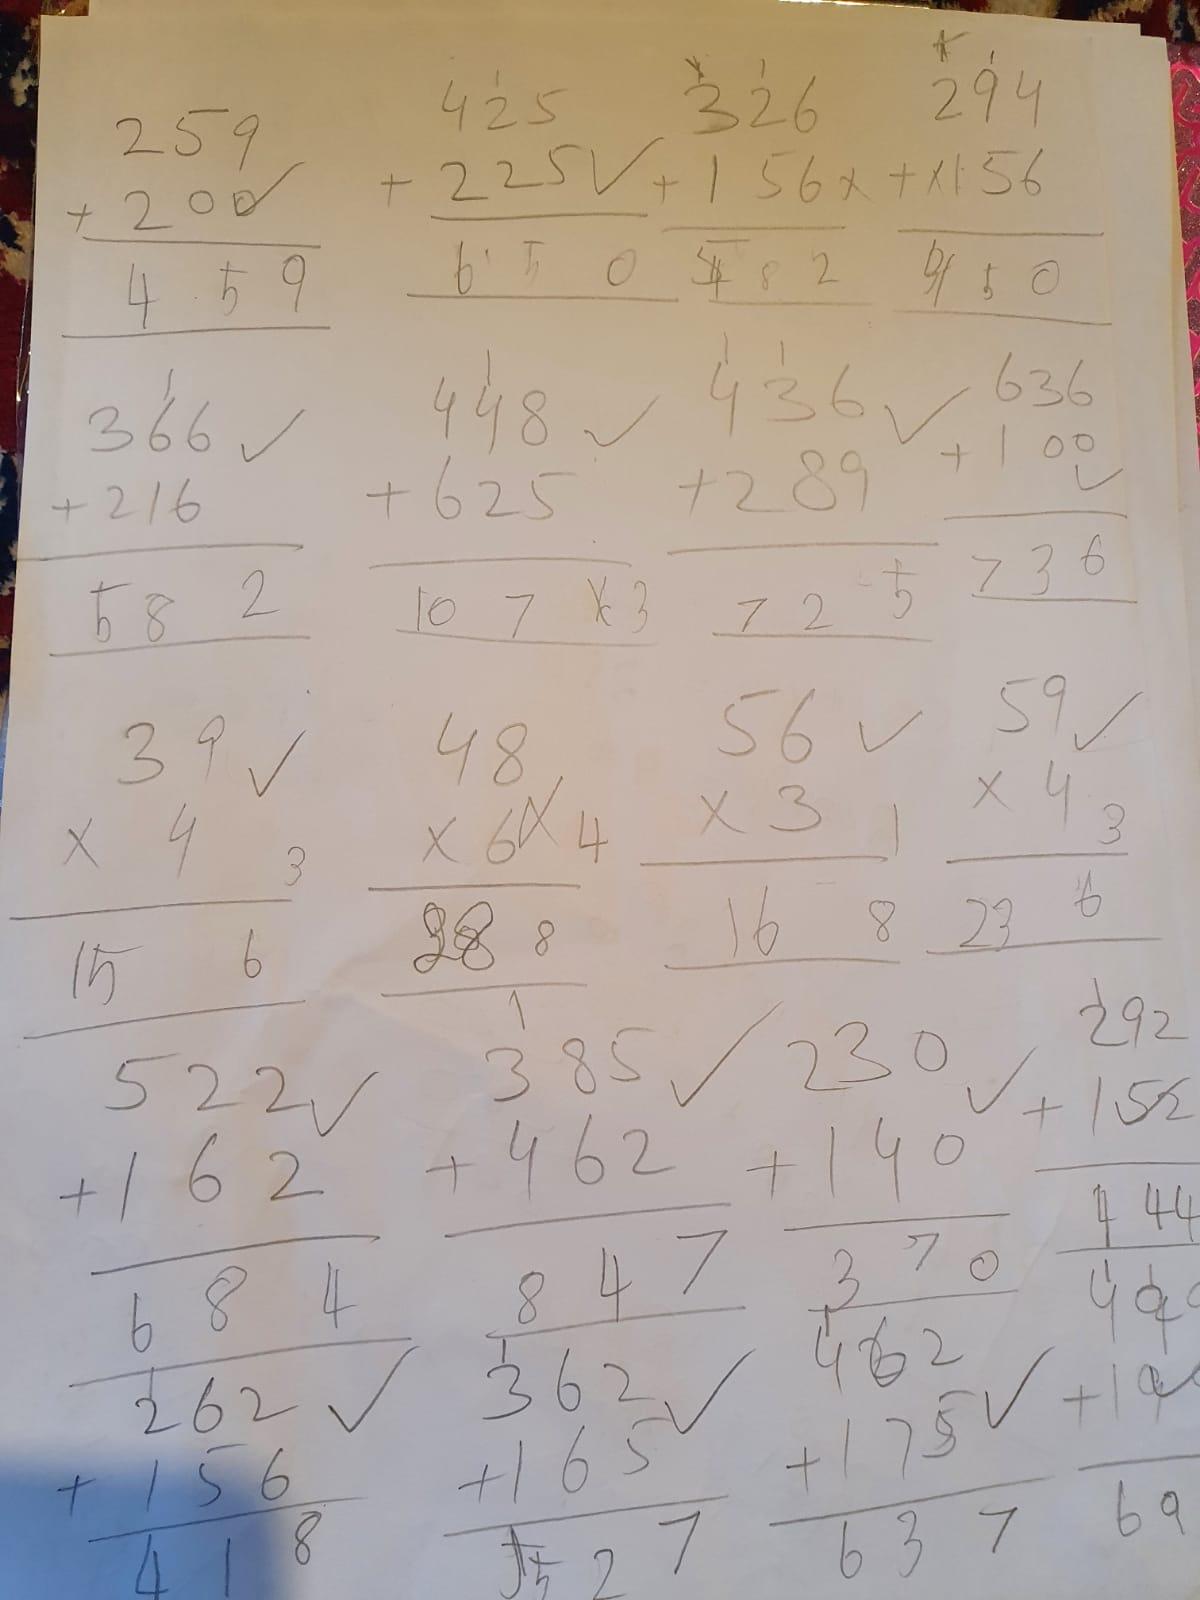 259 425 326 294
+ 200 ✓ + 225 ✓ + 156 x + 156
459 650 482 450
366 ✓ 448 ✓ 436 ✓ 636
+ 216 + 625 + 289 + 100 ✓
582 1073 725 736
39 ✓ 48 56 ✓ 59 ✓
x 4 3 x 6 x 4 x 3 1 x 4 3
156 288 168 236
522 ✓ 385 ✓ 230 ✓ 292
+ 162 + 462 + 140 + 152
684 847 370 444
262 ✓ 362 ✓ 462
+ 156 + 165 ✓ + 175 ✓
418 527 637 69